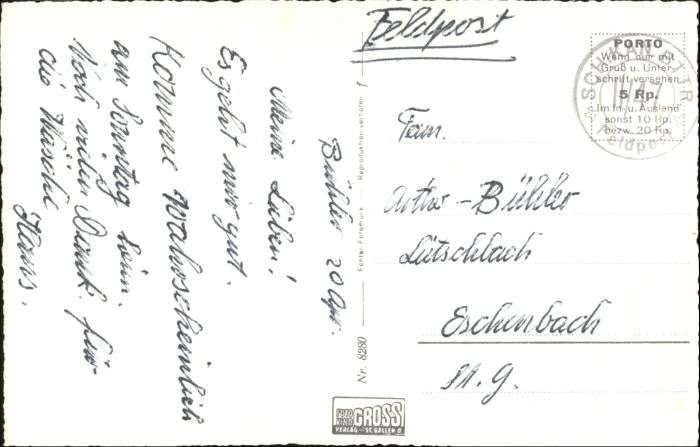 Feldpost
PORTO
Wenn nur mit
Gruß u. Unter-
schrift versehen
5 Rp.
Im In- u. Ausland
sonst 10 Rp.
bezw. 20 Rp.
Feldpost
Fam.
Arthur - Bühler
Lütschbach
Eschenbach
St. G.
Bühler 20 Apr.
Meine Lieben!
Es geht mir gut.
Komme Wahrscheinlich
am Sonntag heim.
Noch vielen Dank für
die Wäsche
Hans.
Nr. 8280
Foto-Fotodruck — Reproduktion verboten
FOTO GROSS
VERLAG ST. GALLEN